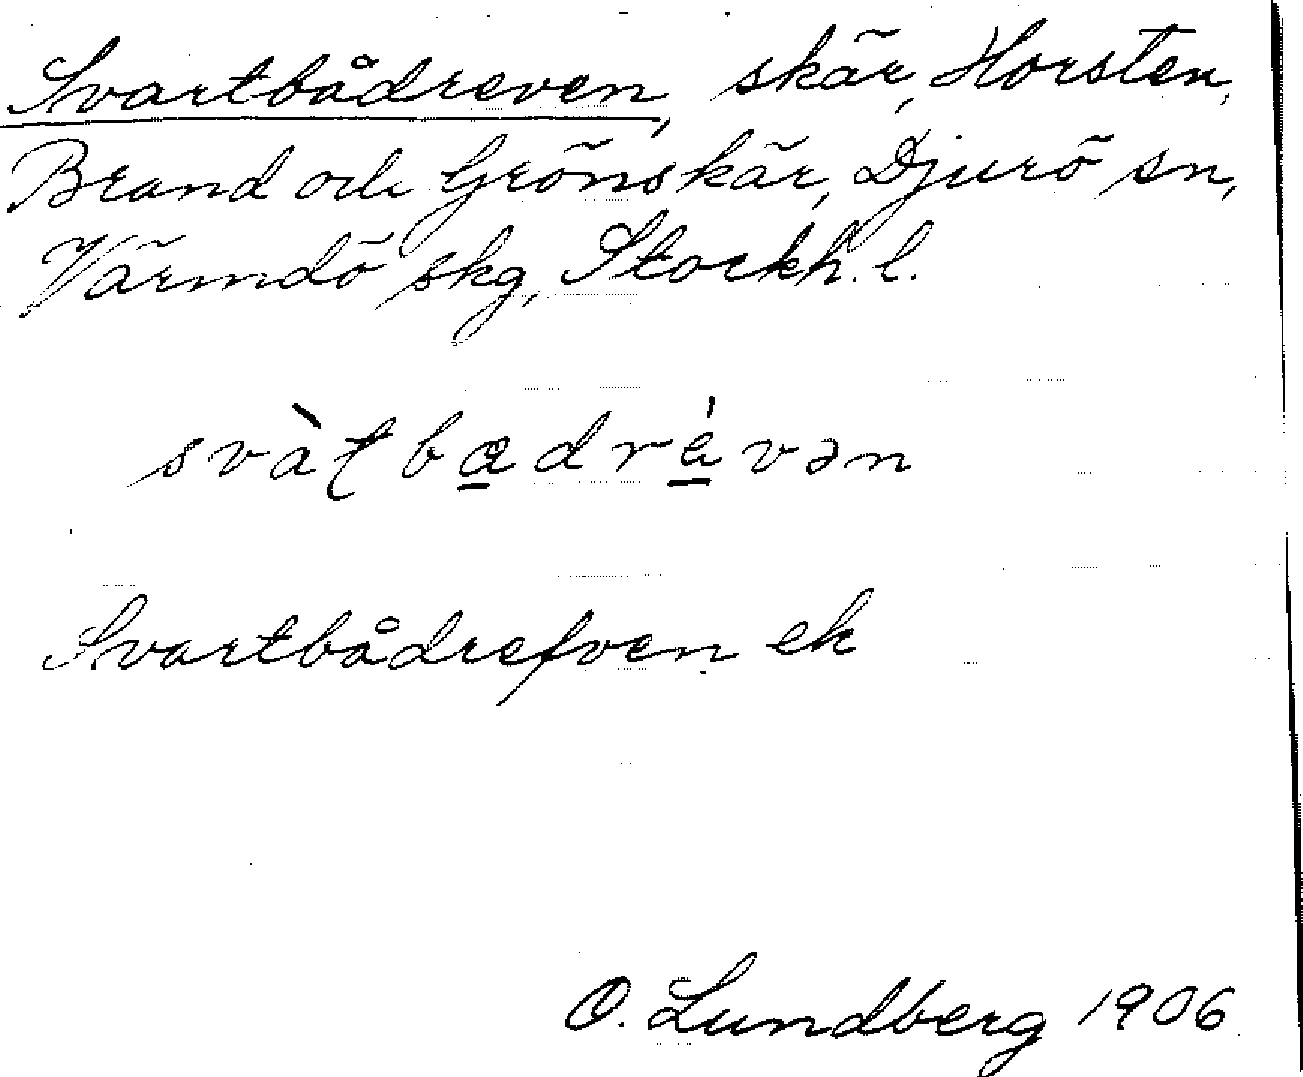 Svartbådreven, skär, Horsten,
Brand och Grönskär, Djurö sn,
Värmdö skg, Stockh. l.
svàʈba̲drá̲vən
Svartbådrefven ek
O. Lundberg 1906